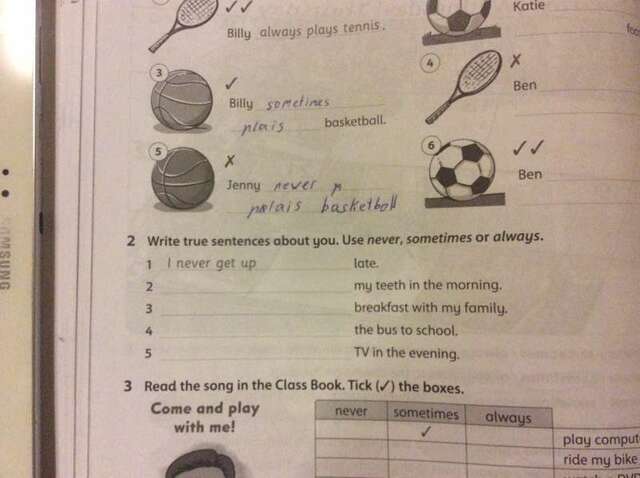 ✓✓
Katie
Billy always plays tennis.
foo
3 ✓
4 ✗
Billy sometines
Ben
plais basketball.
5 ✗
6 ✓✓
Jenny never p
Ben
palais basketball
SAMSUNG
2 Write true sentences about you. Use never, sometimes or always.
1 I never get up late.
2 my teeth in the morning.
3 breakfast with my family.
4 the bus to school.
5 TV in the evening.
3 Read the song in the Class Book. Tick (✓) the boxes.
Come and play
with me!
never sometimes always
✓ play comput
ride my bike